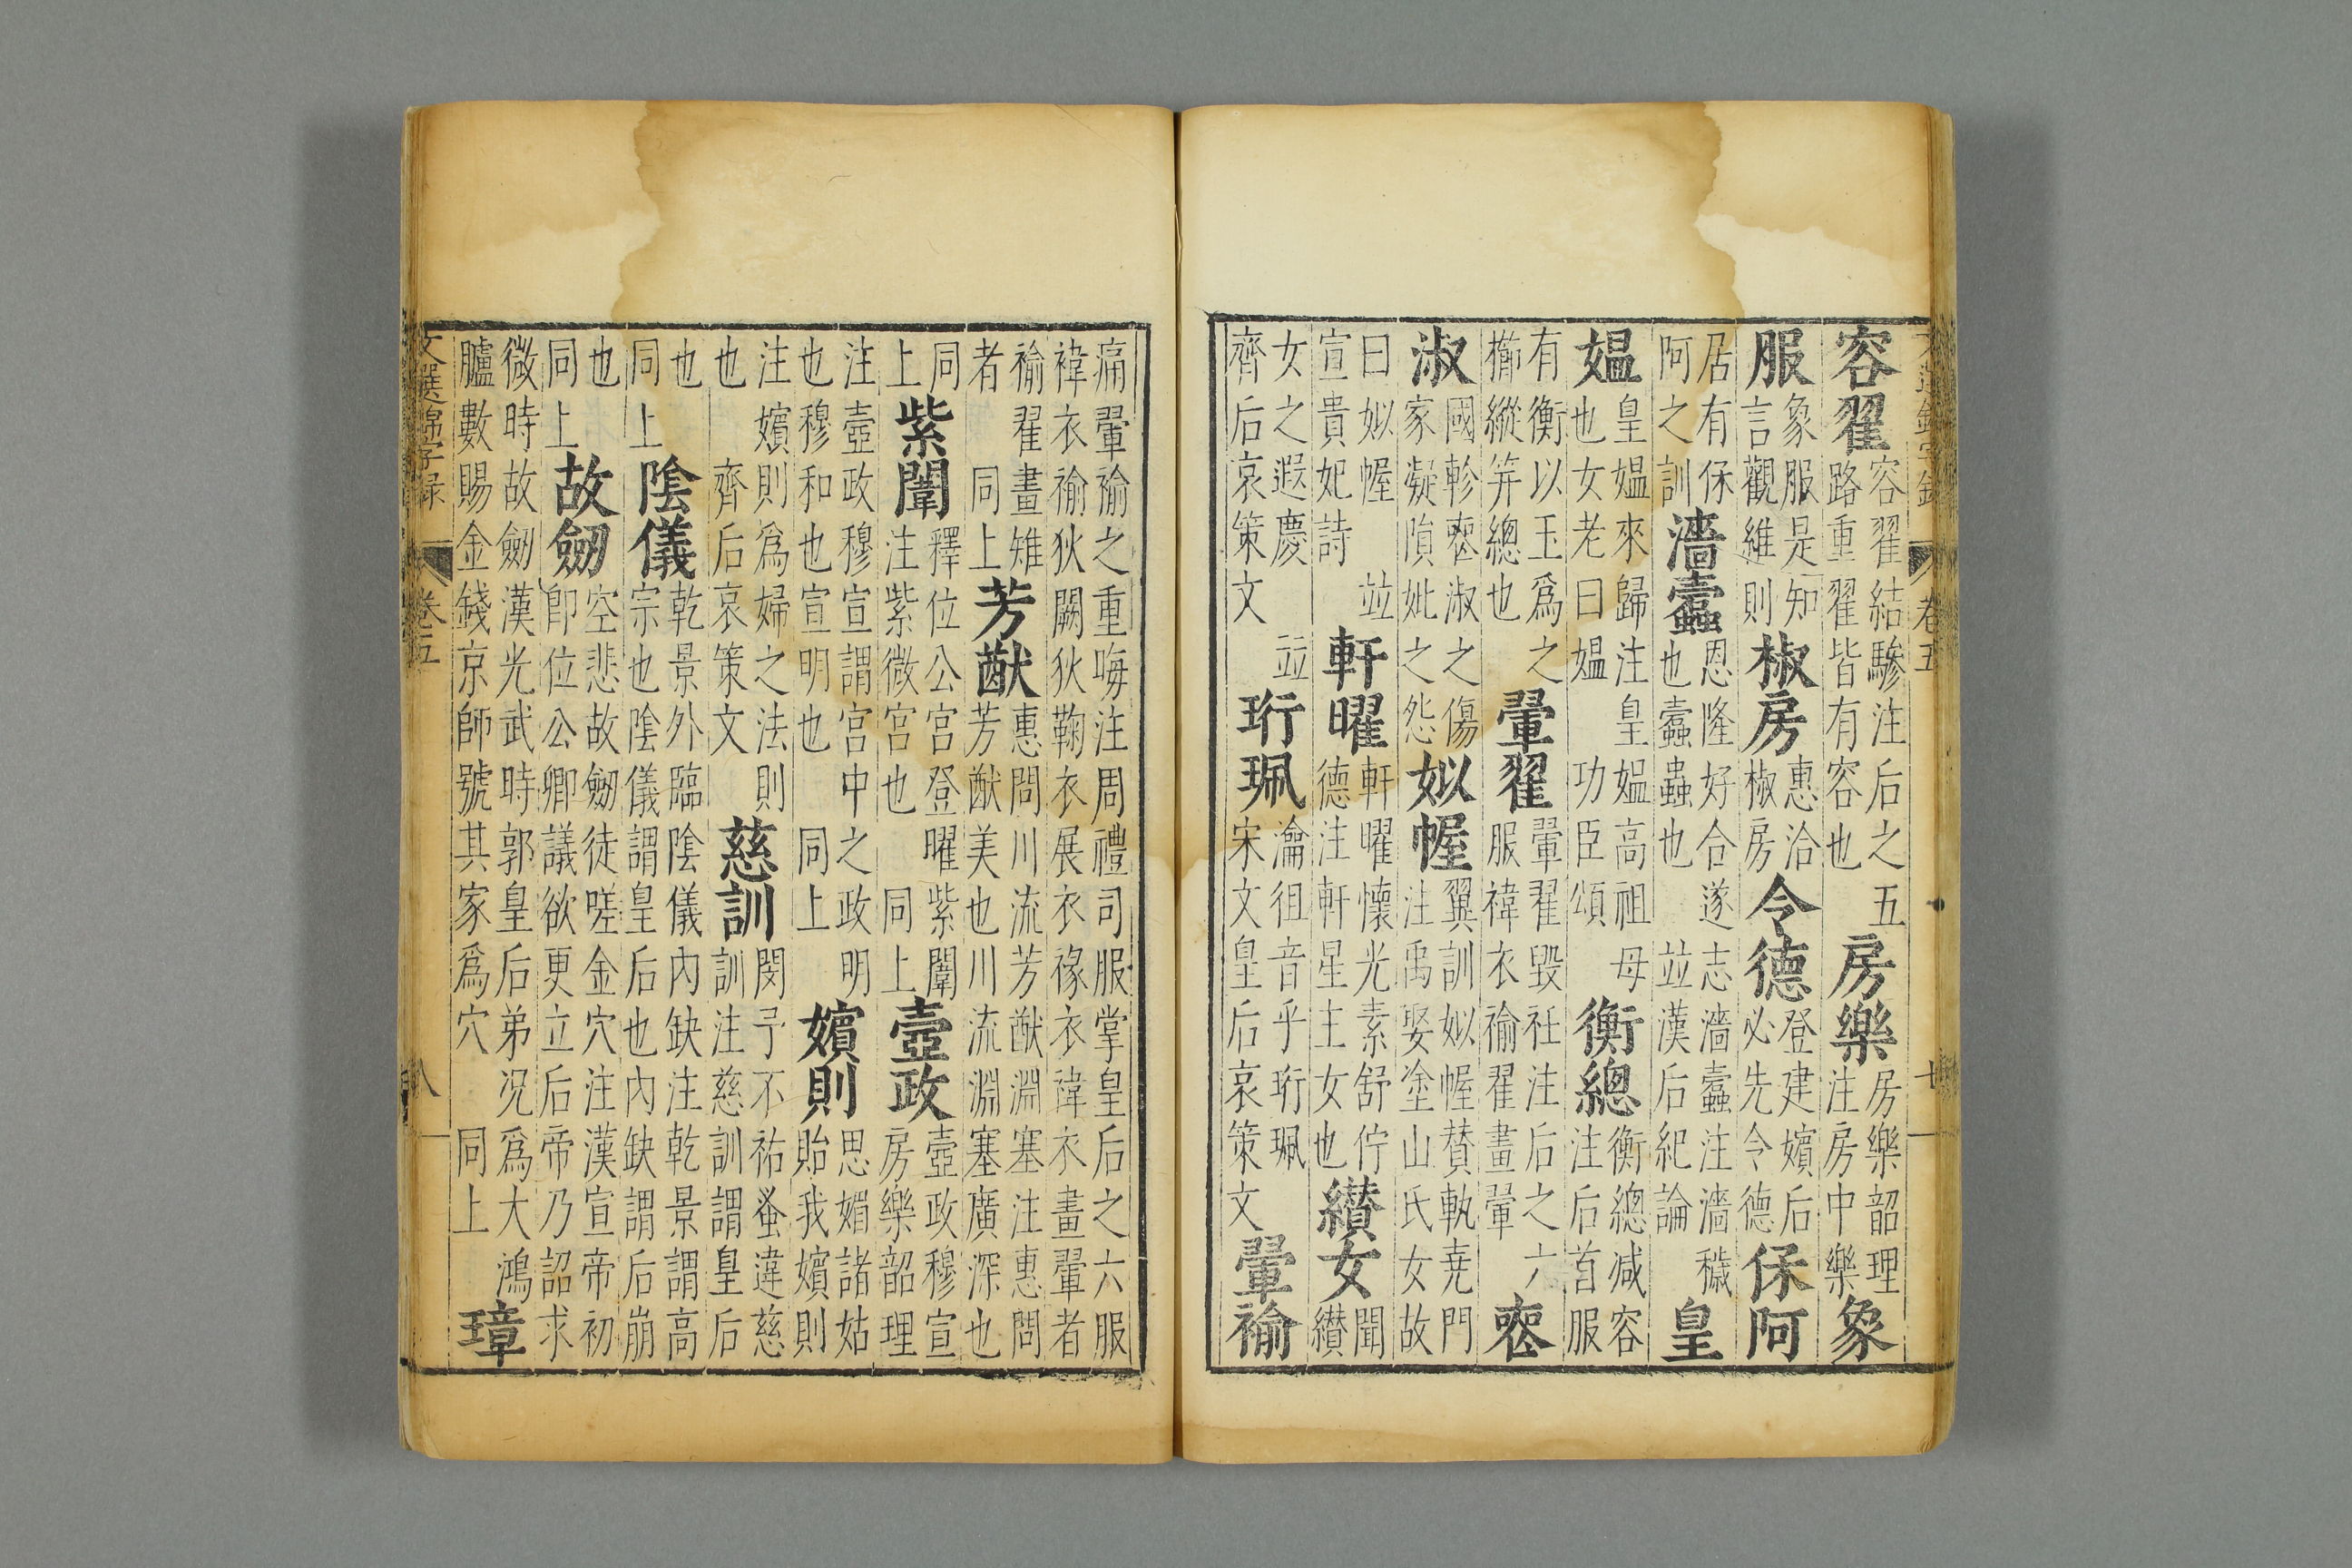 文選錦字錄 卷五 七
容翟 容翟結驂注后之五路重翟皆有容也 房樂 房樂韶理注房中樂 象
服 象服是知言觀維則 椒房 惠洽椒房 令德 登建嬪后必先令德 保阿
居有保阿之訓 濇蠹 恩隆好合遂志濇蠹注濇穢也蠹蟲也 並漢后紀論 皇
媼 皇媼來歸注皇媼高祖母也女老曰媼 功臣頌 衡總 衡總减容注后首服
有衡以玉爲之擳縱笄總也 翬翟 翬翟毀衽注后之六服褘衣褕翟畫翬 喪
淑 國軫喪淑之傷家凝隕妣之怨 姒幄 翼訓姒幄贊軌堯門注禹娶塗山氏女故
曰姒幄 並宣貴妃詩 軒曜 軒曜懷光素舒佇德注軒星主女也 纘女 聞纘
女之遐慶 並齊后哀策文 珩珮 瀹徂音乎珩珮宋文皇后哀策文 翬褕
痛翬褕之重晦注周禮司服掌皇后之六服褘衣褕狄闕狄鞠衣展衣禒衣褘衣畫翬者
褕翟畫雉者 同上 芳猷 惠問川流芳猷淵塞注惠問芳猷美也川流淵塞廣深也
同上 紫闈 釋位公宮登曜紫闈注紫微宮也 同上 壼政 壼政穆宣房樂韶理
注壼政穆宣謂宮中之政明也穆和也宣明也 同上 嬪則 思媚諸姑貽我嬪則
注嬪則爲婦之法則也 齊后哀策文 慈訓 閔予不祐蚤違慈訓注慈訓謂皇后
也同上 陰儀 乾景外臨陰儀內缺注乾景謂高宗也陰儀謂皇后也內缺謂后崩
也同上 故劒 空悲故劒徒嗟金穴注漢宣帝初即位公卿議欲更立后帝乃詔求
微時故劒漢光武時郭皇后弟况爲大鴻臚數賜金錢京師號其家爲穴 同上 璋
文選錦字錄 卷五 八